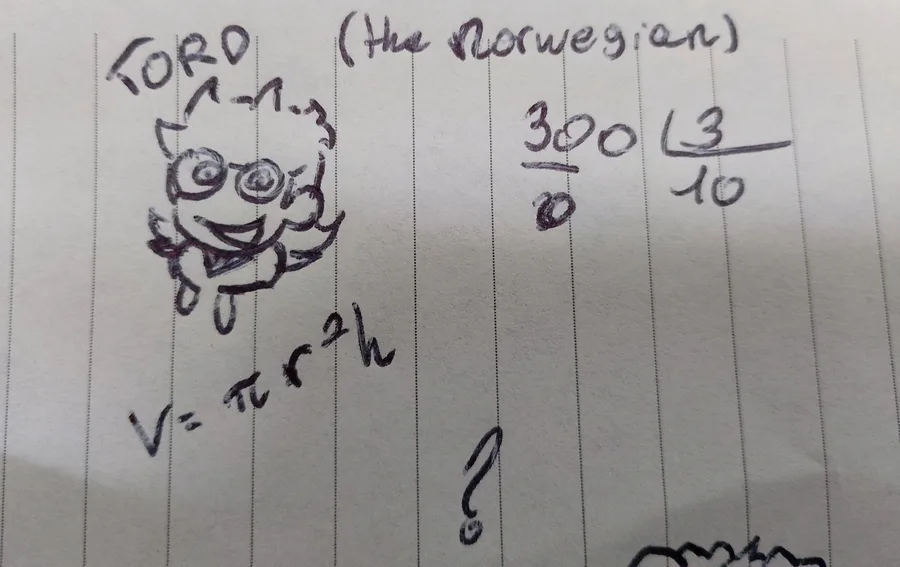 TORD (the Norwegian)
300 3
30 10
0
V = π r²h
?